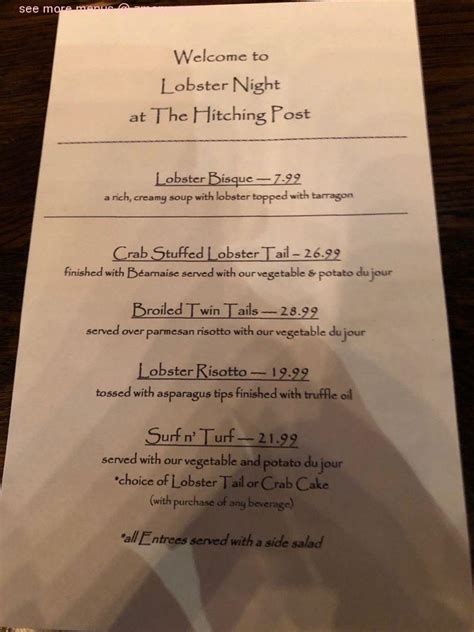 see more menus @
Welcome to
Lobster Night
at The Hitching Post
Lobster Bisque — 7.99
a rich, creamy soup with lobster topped with tarragon
Crab Stuffed Lobster Tail – 26.99
finished with Béarnaise served with our vegetable & potato du jour
Broiled Twin Tails — 28.99
served over parmesan risotto with our vegetable du jour
Lobster Risotto — 19.99
tossed with asparagus tips finished with truffle oil
Surf n' Turf — 21.99
served with our vegetable and potato du jour
*choice of Lobster Tail or Crab Cake
(with purchase of any beverage)
*all Entrees served with a side salad